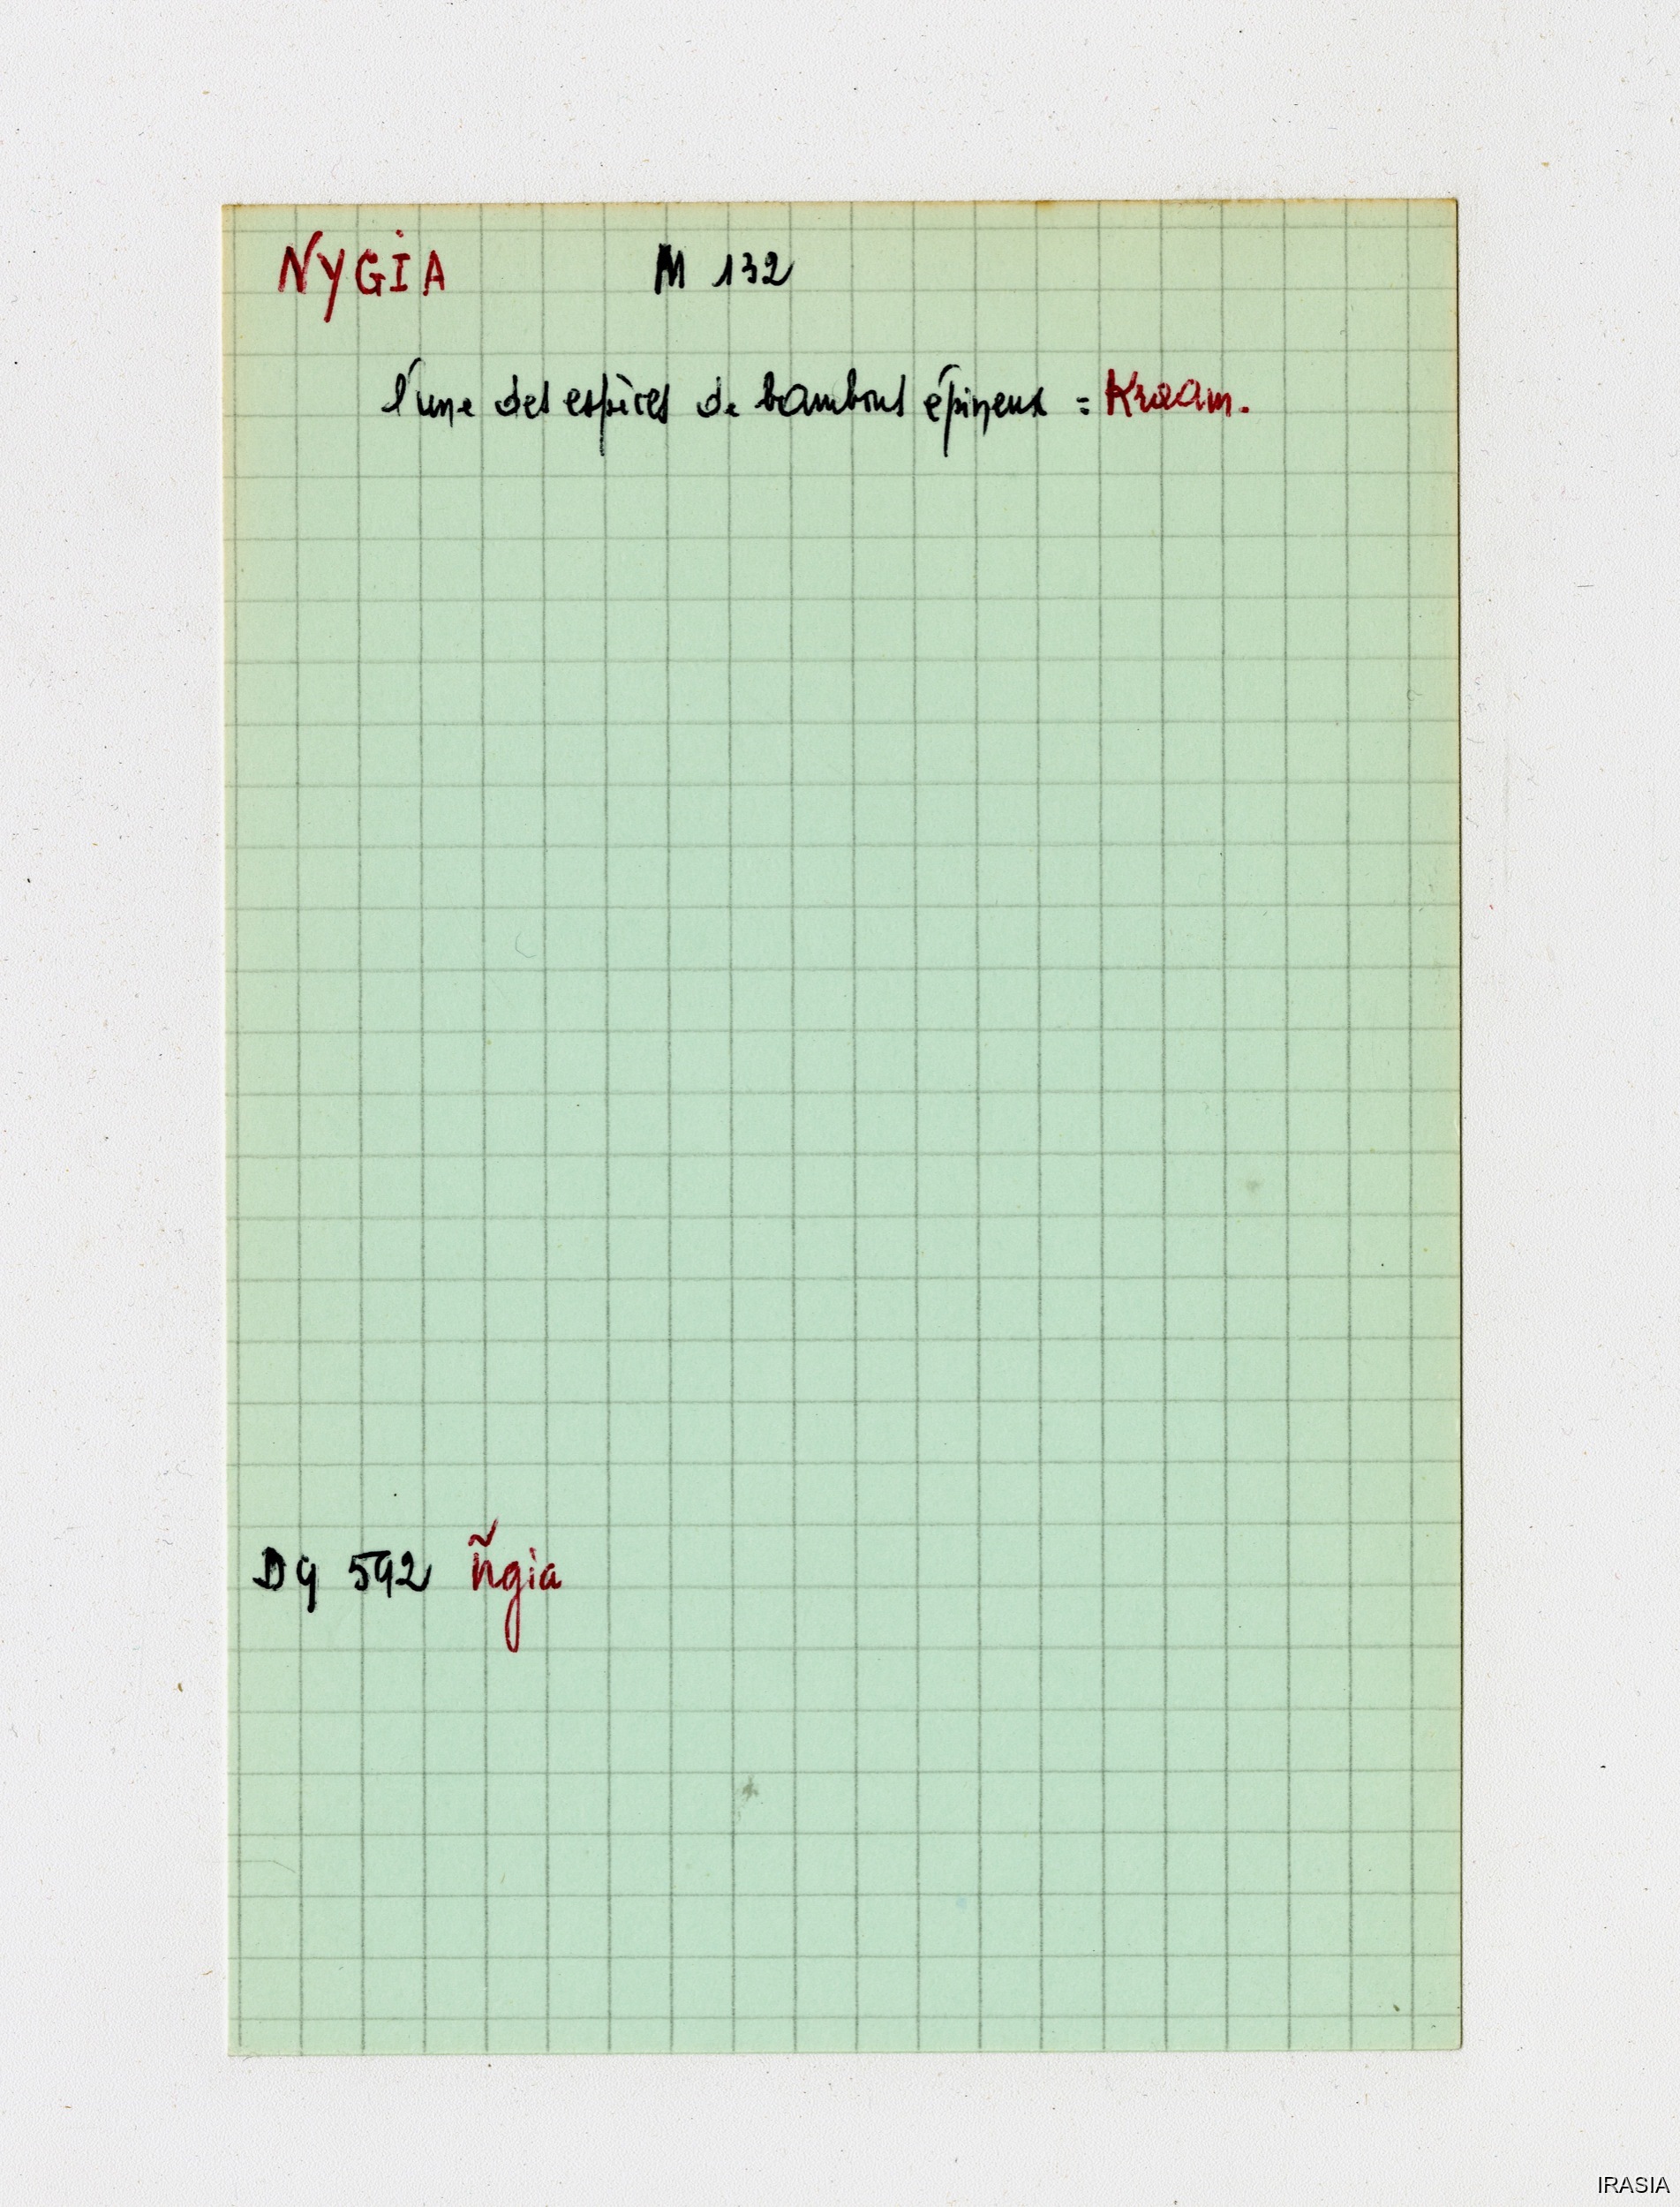 NYGIA M 132
l'une des espèces de bambous épineux = Kraam.
Dg 592 ñgia
IRASIA